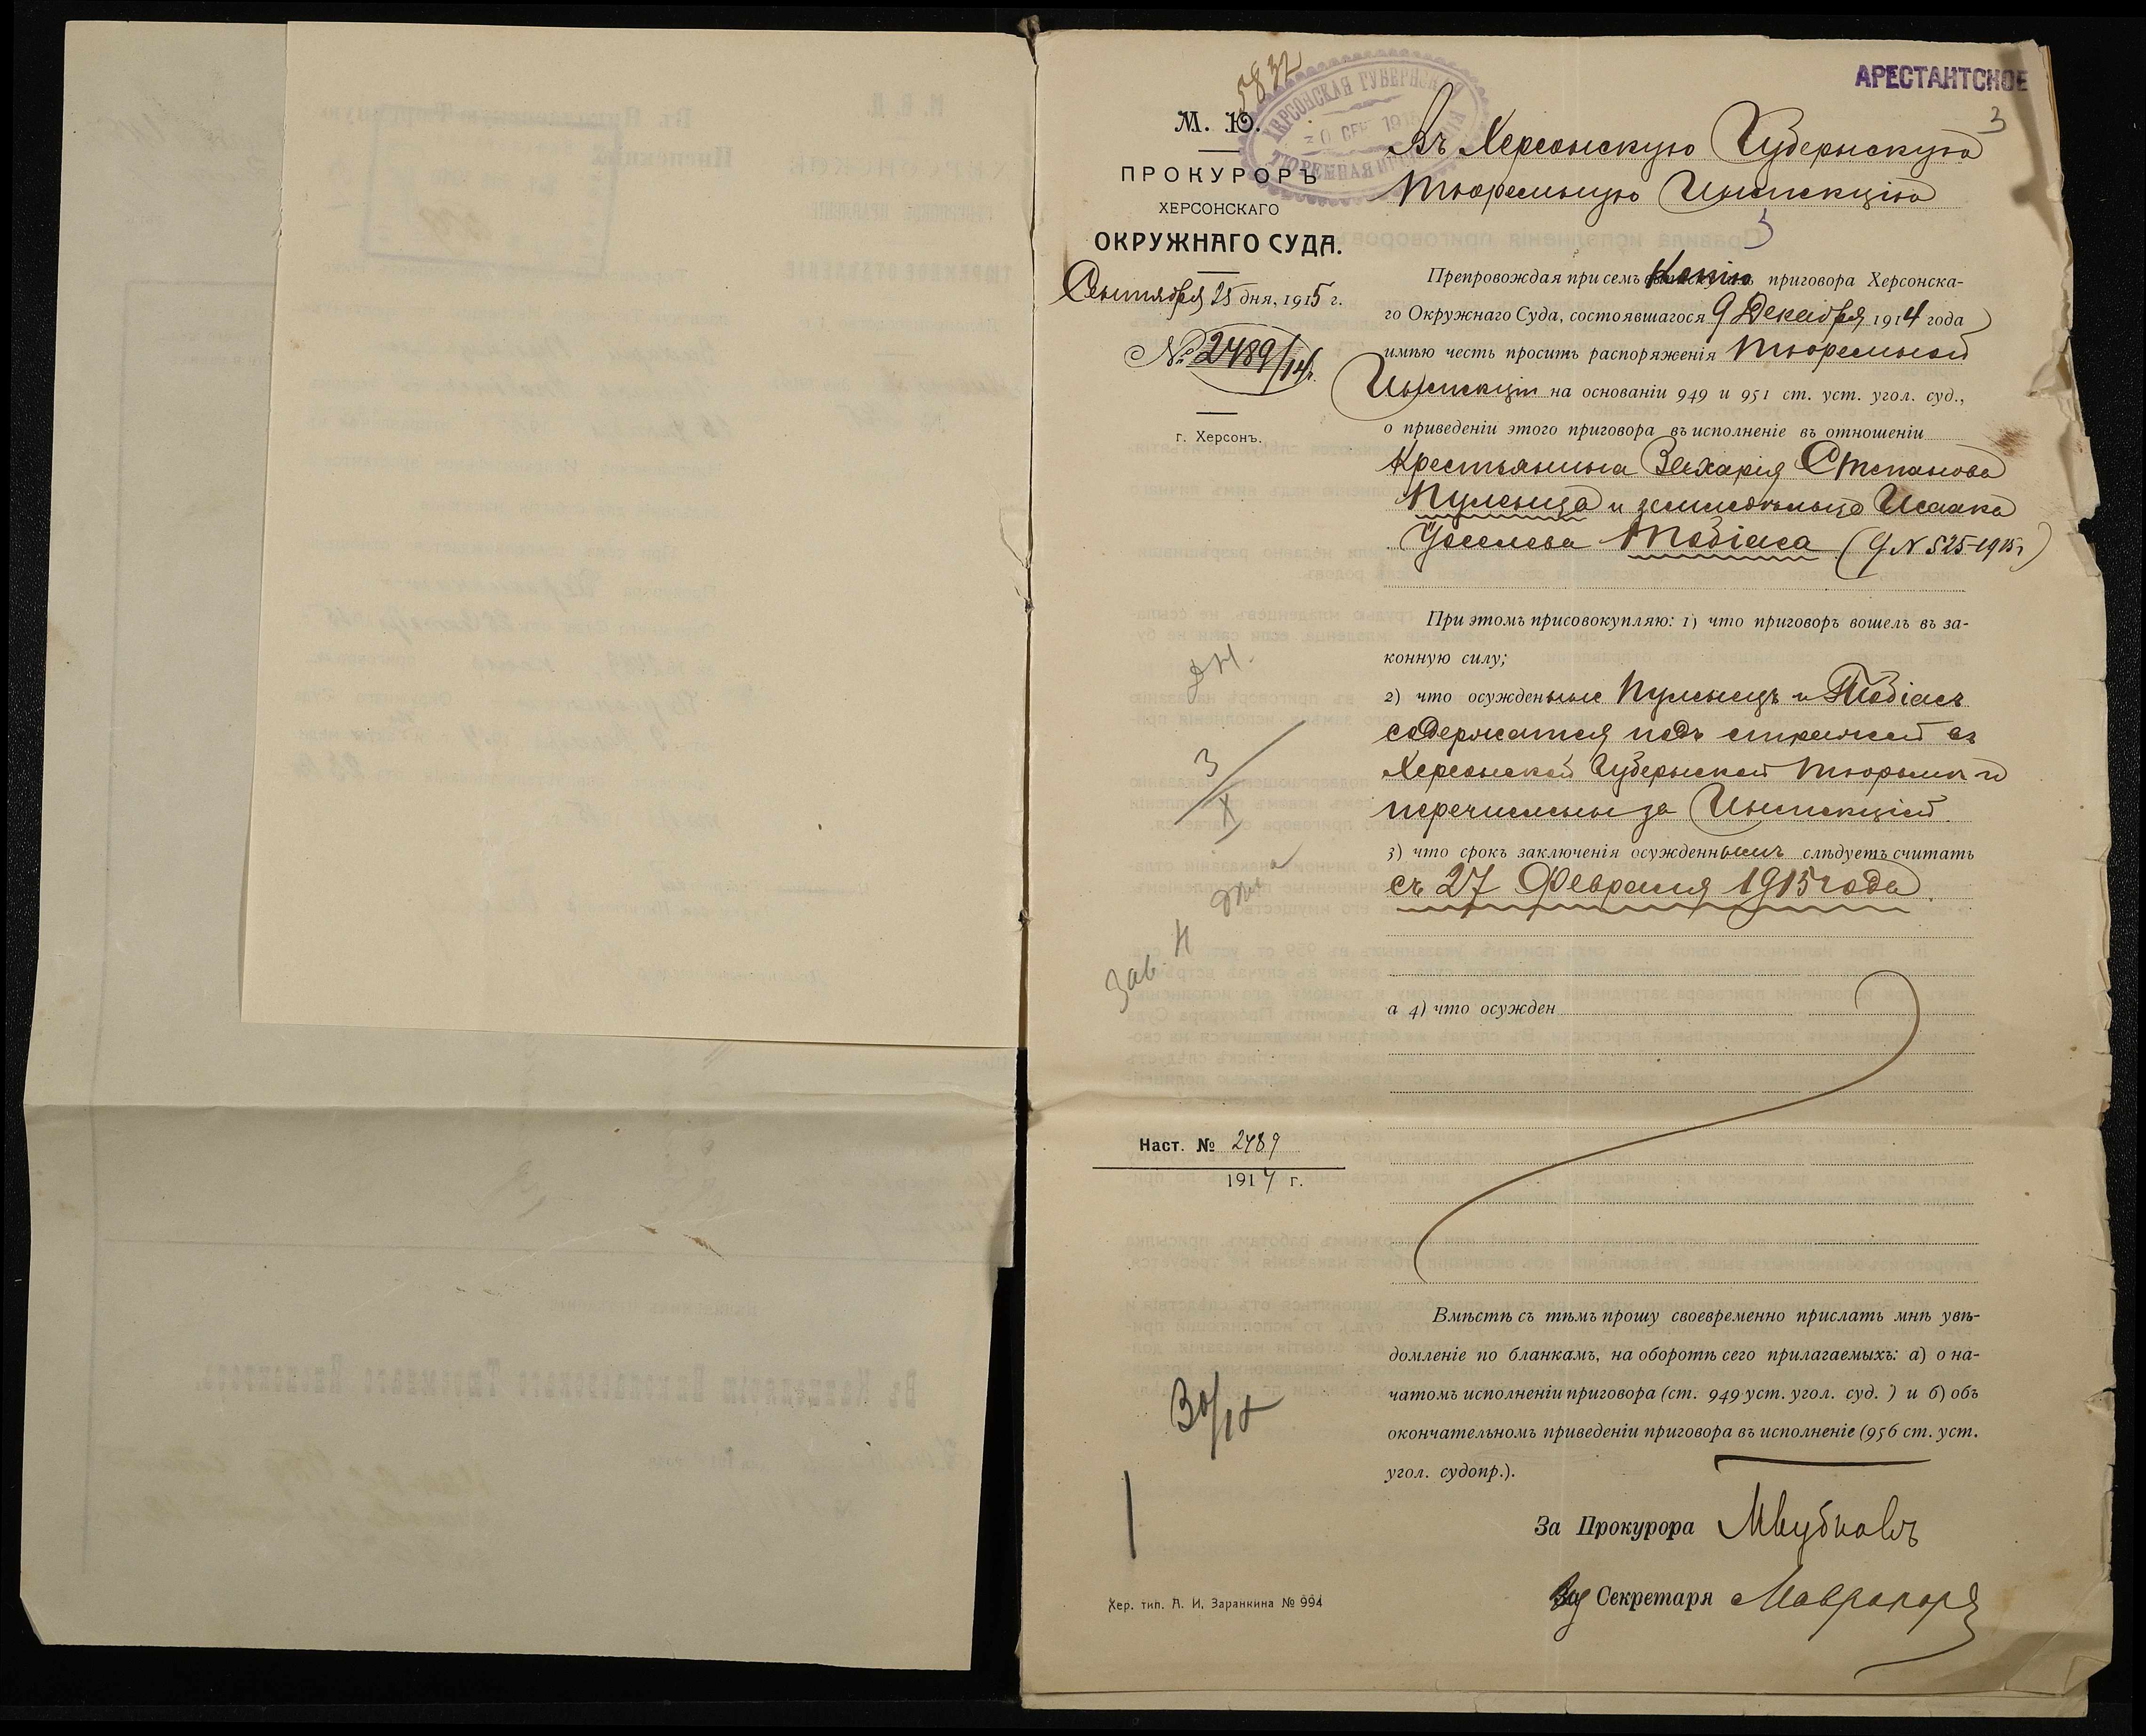 АРЕСТАНТСКОЕ
3
5832
ХЕРСОНСКАЯ ГУБЕРНСКАЯ
30 СЕН 1915
ТЮРЕМНАЯ
М. Ю.
ПРОКУРОРЪ
ХЕРСОНСКАГО
ОКРУЖНАГО СУДА.
Сентября 25 дня, 1915 г.
№ 2489/14г.
г. Херсонъ.
Въ Херсонскую Губернскую
Тюремную Инспекцію
Препровождая при семъ копію приговора Херсонска-
го Окружнаго Суда, состоявшагося 9 Декабря 1914 года
имѣю честь просить распоряженія Тюремной
Инспекціи на основаніи 949 и 951 ст. уст. угол. суд.,
о приведеніи этого приговора въ исполненіе въ отношеніи
Крестьянина Захарія Степанова
Пуленца и земледѣльца Исаака
Іоселева Тобіаса (9 № 525-1915г)
При этомъ присовокупляю: 1) что приговоръ вошелъ въ за-
конную силу;
2) что осужденные Пуленцъ и Тобіасъ
содержатся подъ стражей въ
Херсонской Губернской тюрьмѣ и
перечислены за Инспекціей.
3) что срокъ заключенія осужденнымъ слѣдуетъ считать
съ 27 Февраля 1915 года.
а 4) что осужден
3/X
Зав. II
Наст. № 2489
1914 г.
Вмѣстѣ съ тѣмъ прошу своевременно прислать мнѣ увѣ-
домленіе по бланкамъ, на оборотѣ сего прилагаемыхъ: а) о на-
чатомъ исполненіи приговора (ст. 949 уст. угол. суд. ) и б) объ
окончательномъ приведеніи приговора въ исполненіе (956 ст. уст.
угол. судопр.).
30/IX
За Прокурора
За Секретаря
Хер. тип. А. И. Заранкина № 994